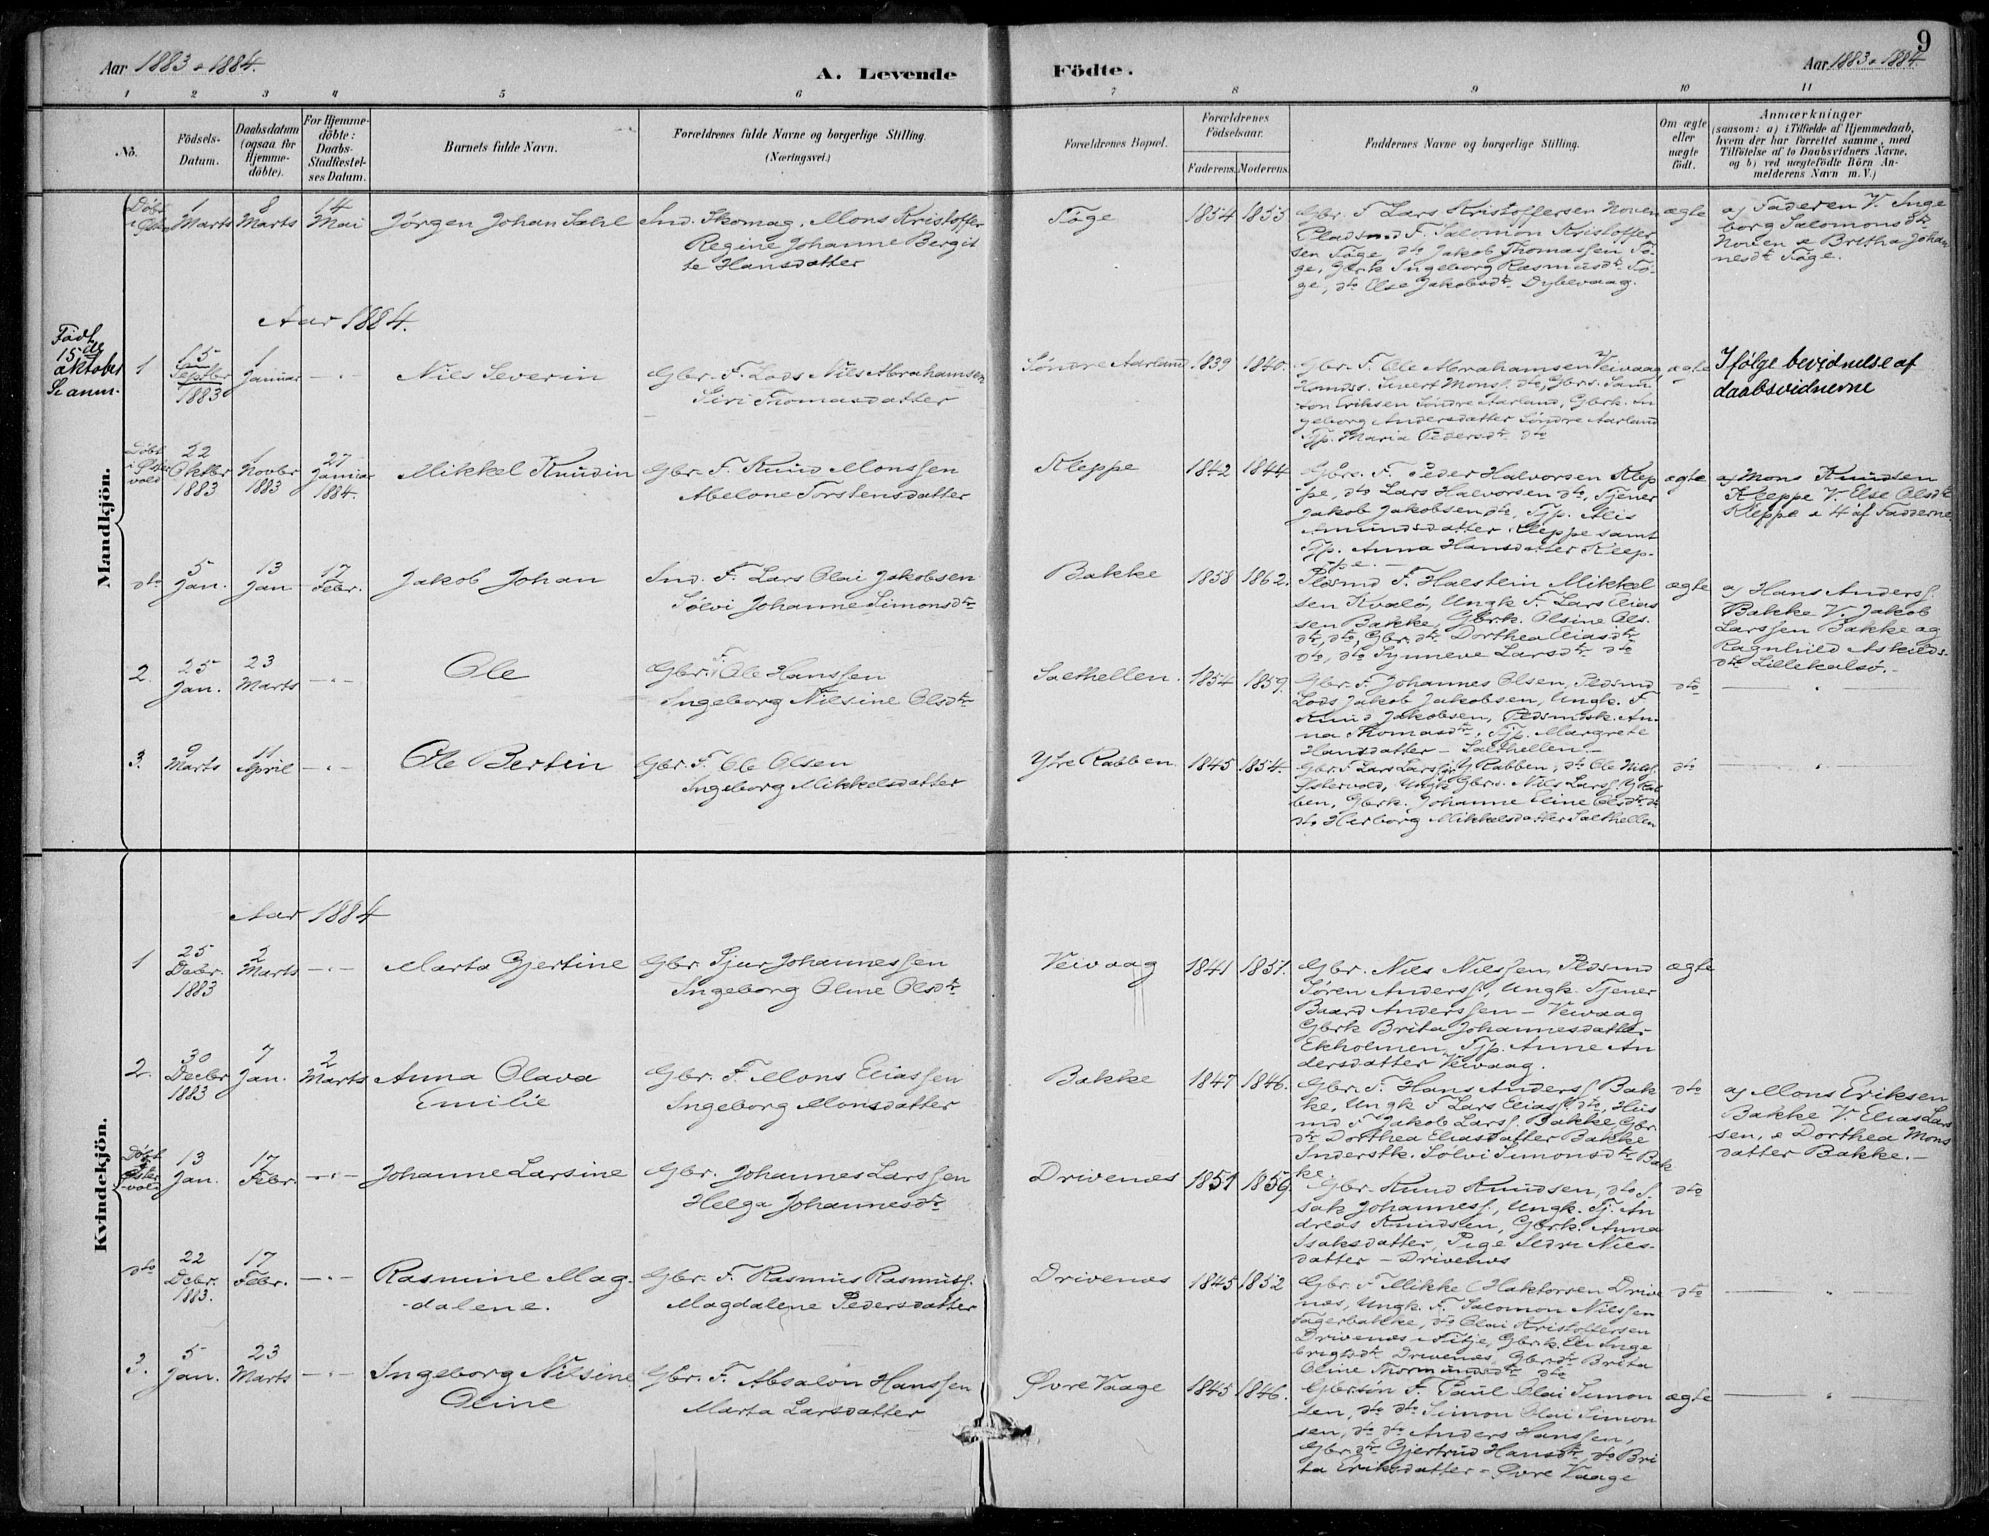 Aar 1883 & 1884.
A. Levende
Födte.
Aar 1883 & 1884
9
1 2 3 4 5 6 7 8 9 10 11
No.
Födsels-
Datum.
Daabsdatum
(ogsaa for
Hjemme-
döbte).
For Hjemme-
döbte:
Daabs-
Stadfæstel-
ses Datum.
Barnets fulde Navn.
Forældrenes fulde Navne og borgerlige Stilling.
(Næringsvei.)
Forældrenes Bopæl.
Forældrenes
Födselsaar.
Faderens. Moderens.
Faddernes Navne og borgerlige Stilling.
Om ægte
eller
uægte
födt.
Anmærkninger
(saasom: a) i Tilfælde af Hjemmedaab,
hvem der har forrettet samme, med
Tilföielse af to Daabsvidners Navne,
og b) ved uægtefödte Börn An-
melderens Navn m. V.)
Mandkjön.
Döbt
1
Marts
8
Marts
14
Mai
Jørgen Johan Sahl
Ind. Skomag. Mons Kristoffer
Regine Johanne Bergit
te Hansdatter
Föge
1854
1855
Gbr. F. Lars Kristoffersen Noven
Pladsmd F. Salomon Kristoffer
sen Föge, dto Jakob Thomassen Fö-
ge, Gbrk Ingeborg Rasmusdtr Fö-
ge, dto Else Jakobsdtr Dybevaag.
ægte
a) Faderen V. Inge
borg Salomonsdtr
Noven & Britha Johan
nesdtr Föge.
Aar 1884.
Födt
15de
oktober
Se anm.
1
15
Septbr
1883
1
Januar
Nils Severin
Gbr. F. Lods Nils Abrahamsen
Siri Thomasdatter
Søndre Aarland
1839
1840.
Gbr. F. Ole Abrahamsen Veivaag
Sivert Mons. dto, Gbrs. Sam
son Eriksen Søndre Aarland, Gbrk. In
geborg Andersdatter Søndre Aarland
Tjp. Maria Pedersdtr dto
ægte
Ifølge bevidnelse af
daabsvidnerne
Döbt
i Øster
vold
22
Oktbr
1883
1
Novbr
1883
27
Januar
1884.
Mikkel Knudin
Gbr. F. Knud Monssen
Abelone Torstensdatter
Kleppe
1842
1844
Gbr. F. Peder Halvorsen Klep
pe, dto Lars Halvorsen dto, Tjener
Jakob Jakobsen dto, Tjp. Alis
Amundsdatter Kleppe samt
Tjp. Anna Hansdatter Klep-
pe. -
ægte
a) Mons Knudsen
Kleppe V. Else Olsdtr
Kleppe & 4 af Fadderne
dto
5
Jan.
13
Jan
17
Febr.
Jakob Johan
Ind. F. Lars Olai Jakobsen
Sølvi Johanne Simonsdtr
Bakke
1858
1862.
Pldsmd F. Halstein Mikkel
sen Kvalö, Ungk. F. Lars Elias
sen Bakke, Gbrk. Olsine Ols.
dtr, dto, Gbr. dtr Dorthea Eliasdtr
dto, dto Synneve Larsdtr dto
ægte
a) Hans Anderss.
Bakke V. Jakob
Larssen Bakke og
Ragnhild Askilds-
dtr Lillekalsö. -
2.
25
Jan.
23
Marts
Ole
Gbr. F. Ole Hanssen
Ingeborg Nilsine Olsdtr
Salthellen.
1854
1859.
Gbr. F. Johannes Olsen, Pldsmd
Lods Jakob Jakobsen, Ungk. F.
Knud Jakobsen, Pldsmdsk. An-
na Thomasdtr, Tjp. Margrete
Hansdatter - Salthellen. -
dto
3.
9
Marts
11
April
Ole Bertin
Gbr. F. Ole Olsen
Ingeborg Mikkelsdatter
Ytre Rabben
1845
1854.
Gbr. F. Lars Larss. Y. Rabben, dto Ole Nils.
Østervold, Ungk. Gbrs. Nils Larss. Y. Rab
ben, Gbrk. Johanne Eline Olsdtr dto
dto Herborg Mikkelsdatter Salthellen
dto
Kvindekjön.
Aar 1884
1
25
Decbr.
1883
2
Marts
Marta Gjertine
Gbr. Sjur Johannessen
Ingeborg Oline Olsdtr
Veivaag
1841
1851.
Gbr. Nils Nilssen, Pldsmd
Sören Anderss., Ungk. Tjener
Baard Anderssen - Veivaag
Gbrk Brita Johannesdatter
Ekholmen, Tjp. Anne An
dersdatter Veivaag.
ægte
2.
30
Decbr
1883
7
Jan.
2
Marts
Anna Olava
Emilie
Gbr. F. Mons Eliassen
Ingeborg Monsdatter
Bakke
1847
1846.
Gbr. F. Hans Anderss. Bak
ke, Ungk F. Lars Eliass. dto, Hus
md F. Jakob Larss. Bakke, Gbr.
dtr Dorthea Eliasdatter Bakke
Inderstk. Sölvi Simonsdtr Bak
ke
dto
a) Mons Eriksen
Bakke V. Elias Lars
sen, & Dorthea Mons
datter Bakke. -
Döbt
i
Øster
-vold
13
Jan.
17
Febr.
Johanne Larsine
Gbr. Johannes Larssen
Helga Johannesdtr
Drivenes
1851
1859.
Gbr. Knud Knudsen, dto I.
sak Johanness., Ungk. Tj. An
dreas Knudsen, Gbrk. Anna
Isaksdatter, Pige Sedri Niels-
datter - Drivenes
dto
dto
22
Decbr.
1883.
17
Febr.
Rasmine Mag-
-dalene.
Gbr. F. Rasmus Rasmuss.
Magdalene Pedersdatter
Drivenes
1845
1852
Gbr. F. Mikkel Haktorsen Drive
nes, Ungk. F. Salomon Nilssen
Fagerbakke, dto Olai Kristoffersen
Drivenes & Fitje, Gbrk. Eli Inge
brigtsdtr Drivenes, Gbr dtr Brita
Oline dto
dto
3.
5
Jan.
23
Marts
Ingeborg Nilsine
Oline
Gbr. F. Absalon Hanssen
Marta Larsdatter
Øvre Vaage
1845
1846.
Gbrsön F. Paul Olai Simon
sen, dto dto Simon Olai Simon
sen, dto dto Anders Hanssen,
Gbr. dtr Gjertrud Hansdtr, dto Bri
ta Eriksdatter - Øvre Vaage
ægte